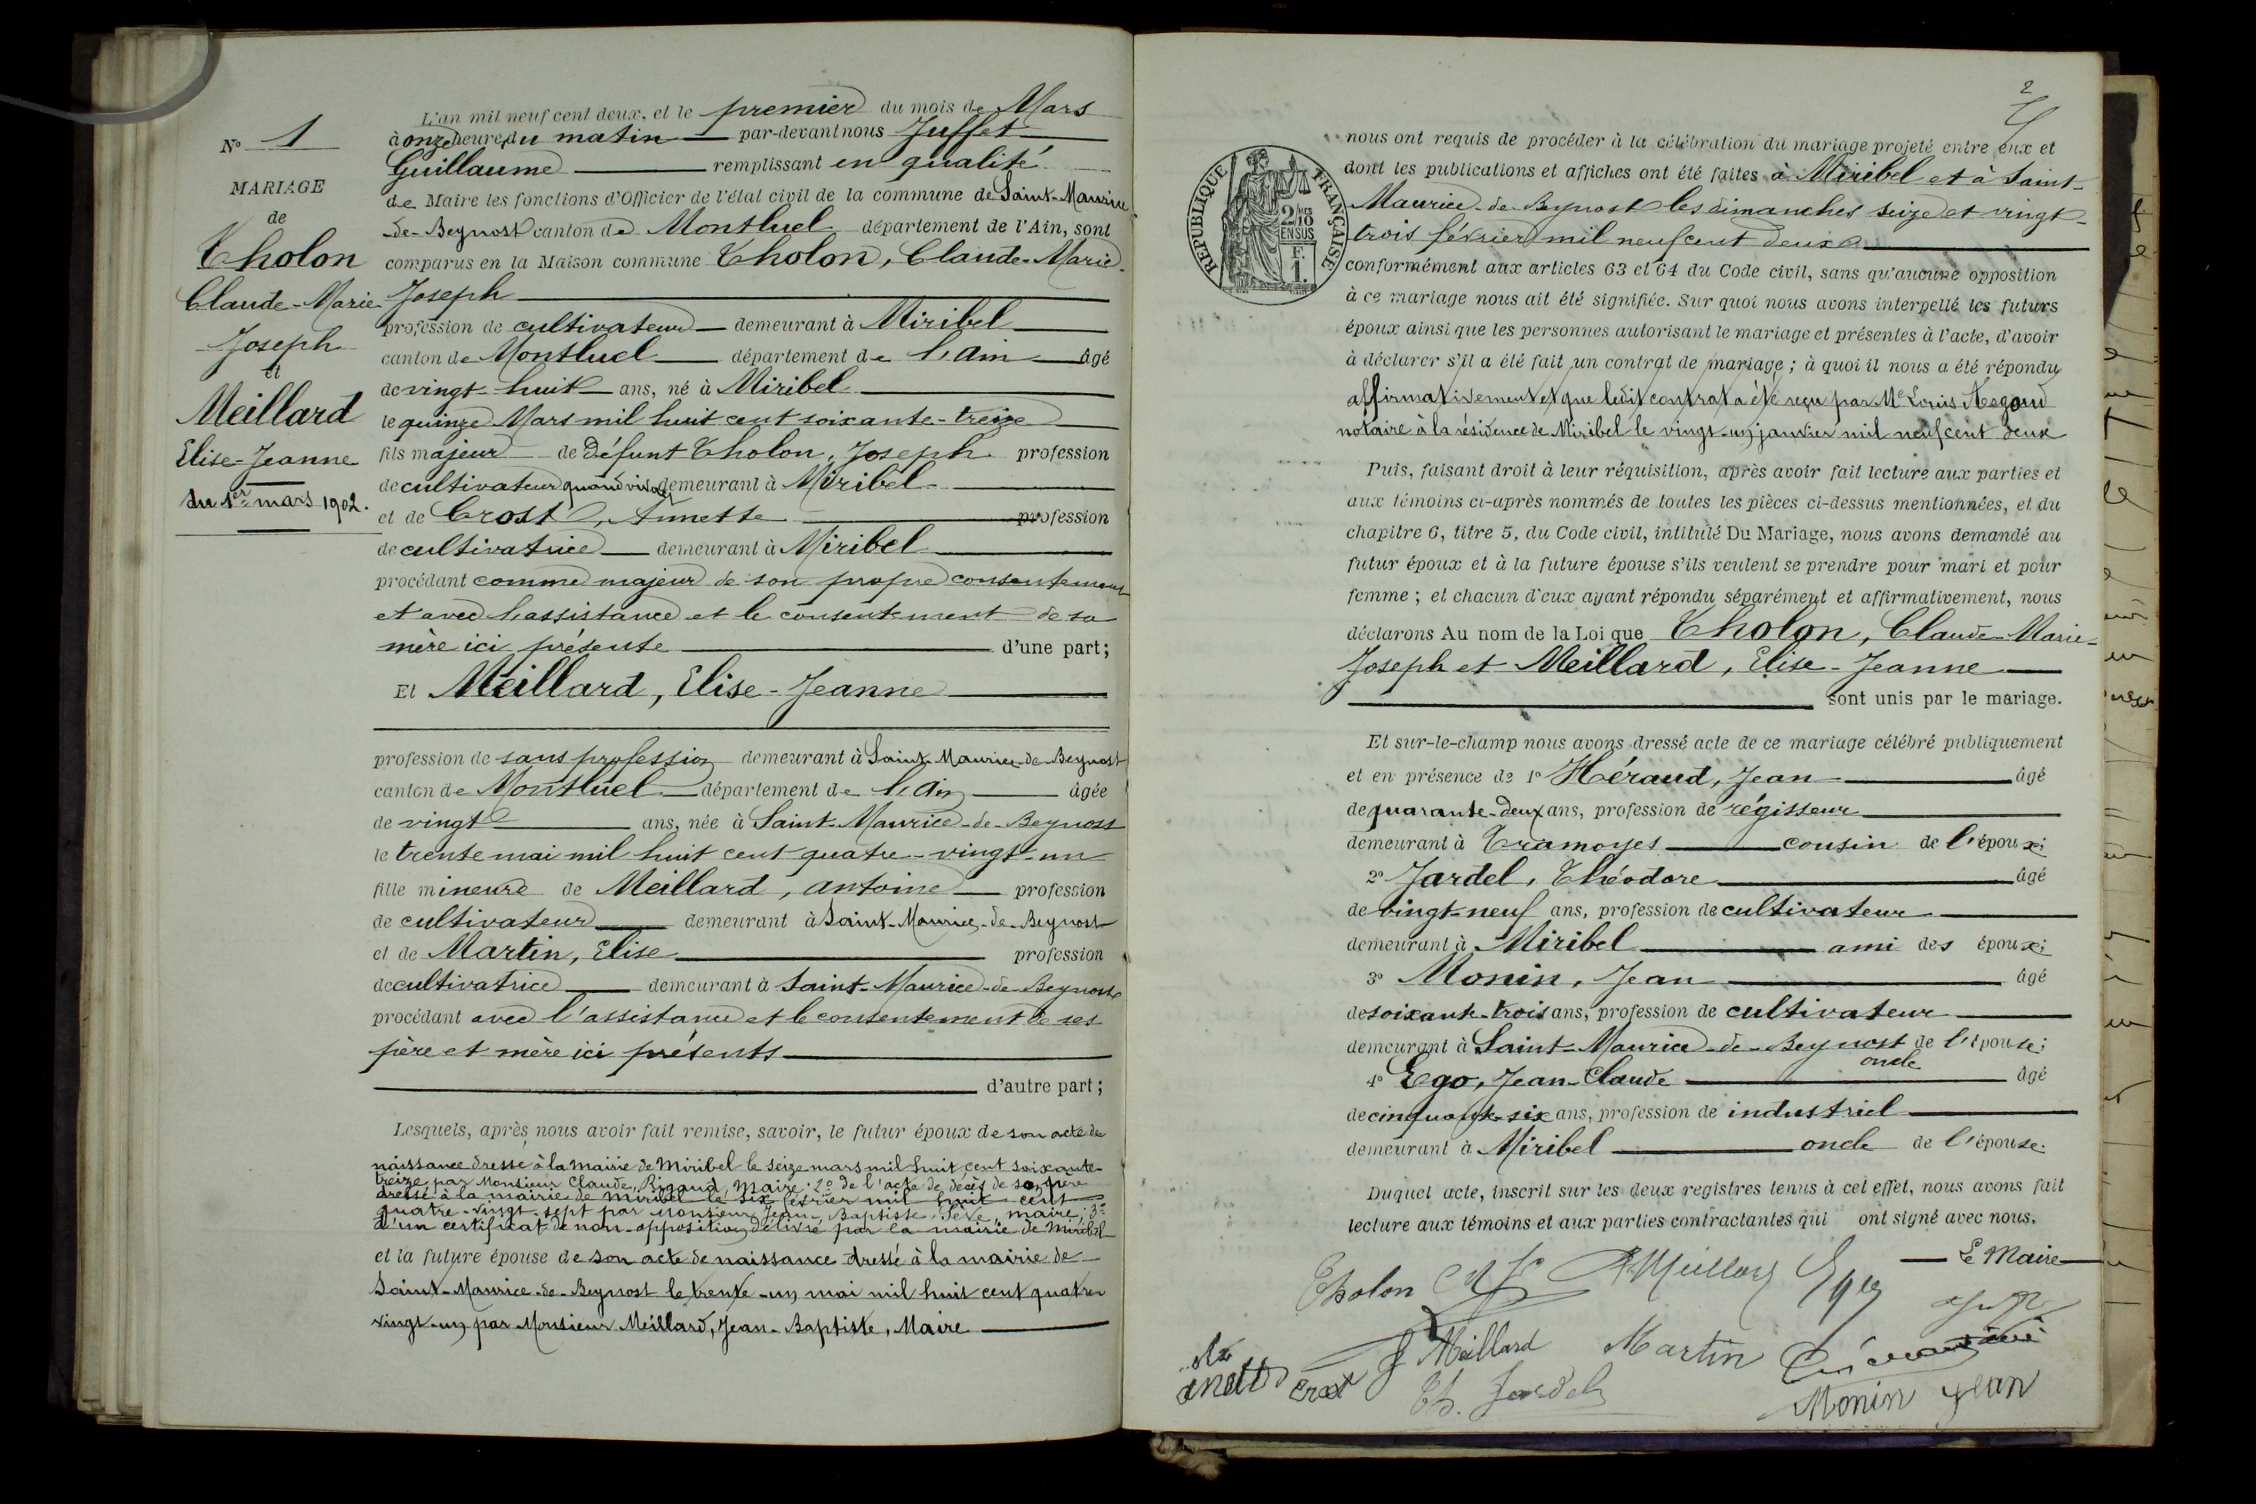 N° 1
MARIAGE
de
Tholon
Claude-Marie
Joseph
et
Meillard
Elise-Jeanne
du 1er mars 1902.
L'an mil neuf cent deux, et le premier du mois de Mars
à onze heures du matin par-devant nous Juffet
Guillaume remplissant en qualité
de Maire les fonctions d'Officier de l'état civil de la commune de Saint-Maurice
-de-Beynost canton de Montluel département de l'Ain, sont
comparus en la Maison commune Tholon, Claude-Marie-
Joseph
profession de cultivateur demeurant à Miribel
canton de Montluel département de l'Ain âgé
de vingt-huit ans, né à Miribel
le quinze Mars mil huit cent soixante-treize
fils majeur de défunt Tholon, Joseph profession
de cultivateur quand vivait demeurant à Miribel
et de Crost, Annette profession
de cultivatrice demeurant à Miribel
procédant comme majeur de son propre consentement
et avec l'assistance et le consentement de sa
mère ici présente d'une part;
Et Meillard, Elise-Jeanne
profession de sans profession demeurant à Saint-Maurice-de-Beynost
canton de Montluel département de l'Ain âgée
de vingt ans, née à Saint-Maurice-de-Beynost
le trente mai mil huit cent quatre-vingt-un
fille mineure de Meillard, Antoine profession
de cultivateur demeurant à Saint-Maurice-de-Beynost
et de Martin, Elise profession
de cultivatrice demeurant à Saint-Maurice-de-Beynost
procédant avec l'assistance et le consentement de ses
père et mère ici présents
d'autre part;
Lesquels, après nous avoir fait remise, savoir, le futur époux de son acte de
naissance dressé à la mairie de Miribel le seize mars mil huit cent soixante-
treize par Monsieur Claude, Rigaud, Maire; 2° de l'acte de décès de son père
dressé à la mairie de Miribel le six février mil huit cent
quatre-vingt-sept par Monsieur Jean-Baptiste, Sève, maire; 3°
d'un certificat de non-opposition délivré par la mairie de Miribel
et la future épouse de son acte de naissance dressé à la mairie de
Saint-Maurice-de-Beynost le trente-un mai mil huit cent quatre
vingt-un par Monsieur Meillard, Jean-Baptiste, Maire
2
RÉPUBLIQUE FRANÇAISE
2/10 EN SUS
F. 1.
nous ont requis de procéder à la célébration du mariage projeté entre eux et
dont les publications et affiches ont été faites à Miribel et à Saint-
Maurice-de-Beynost les dimanches seize et vingt-
trois février mil neuf cent deux
conformément aux articles 63 et 64 du Code civil, sans qu'aucune opposition
à ce mariage nous ait été signifiée. Sur quoi nous avons interpellé les futurs
époux ainsi que les personnes autorisant le mariage et présentes à l'acte, d'avoir
à déclarer s'il a été fait un contrat de mariage; à quoi il nous a été répondu
affirmativement et que ledit contrat a été reçu par Me Louis
notaire à la résidence de Miribel le vingt-un janvier mil neuf cent deux
Puis, faisant droit à leur réquisition, après avoir fait lecture aux parties et
aux témoins ci-après nommés de toutes les pièces ci-dessus mentionnées, et du
chapitre 6, titre 5, du Code civil, intitulé Du Mariage, nous avons demandé au
futur époux et à la future épouse s'ils veulent se prendre pour mari et pour
femme; et chacun d'eux ayant répondu séparément et affirmativement, nous
déclarons Au nom de la Loi que Tholon, Claude-Marie-
Joseph et Meillard, Elise-Jeanne
sont unis par le mariage.
Et sur-le-champ nous avons dressé acte de ce mariage célébré publiquement
et en présence de 1° Héraud, Jean âgé
de quarante-deux ans, profession de régisseur
demeurant à Tramoyes cousin de l'époux;
2° Jardel, Théodore âgé
de vingt-neuf ans, profession de cultivateur
demeurant à Miribel ami des époux;
3° Monin, Jean âgé
de soixante-trois ans, profession de cultivateur
demeurant à Saint-Maurice-de-Beynost oncle de l'épouse;
4° Ego, Jean-Claude âgé
de cinquante-six ans, profession de industriel
demeurant à Miribel oncle de l'épouse.
Duquel acte, inscrit sur les deux registres tenus à cet effet, nous avons fait
lecture aux témoins et aux parties contractantes qui ont signé avec nous.
Le Maire
Tholon Meillard Ego
Meillard Martin
anette crost Th. Jardel Monin Jean